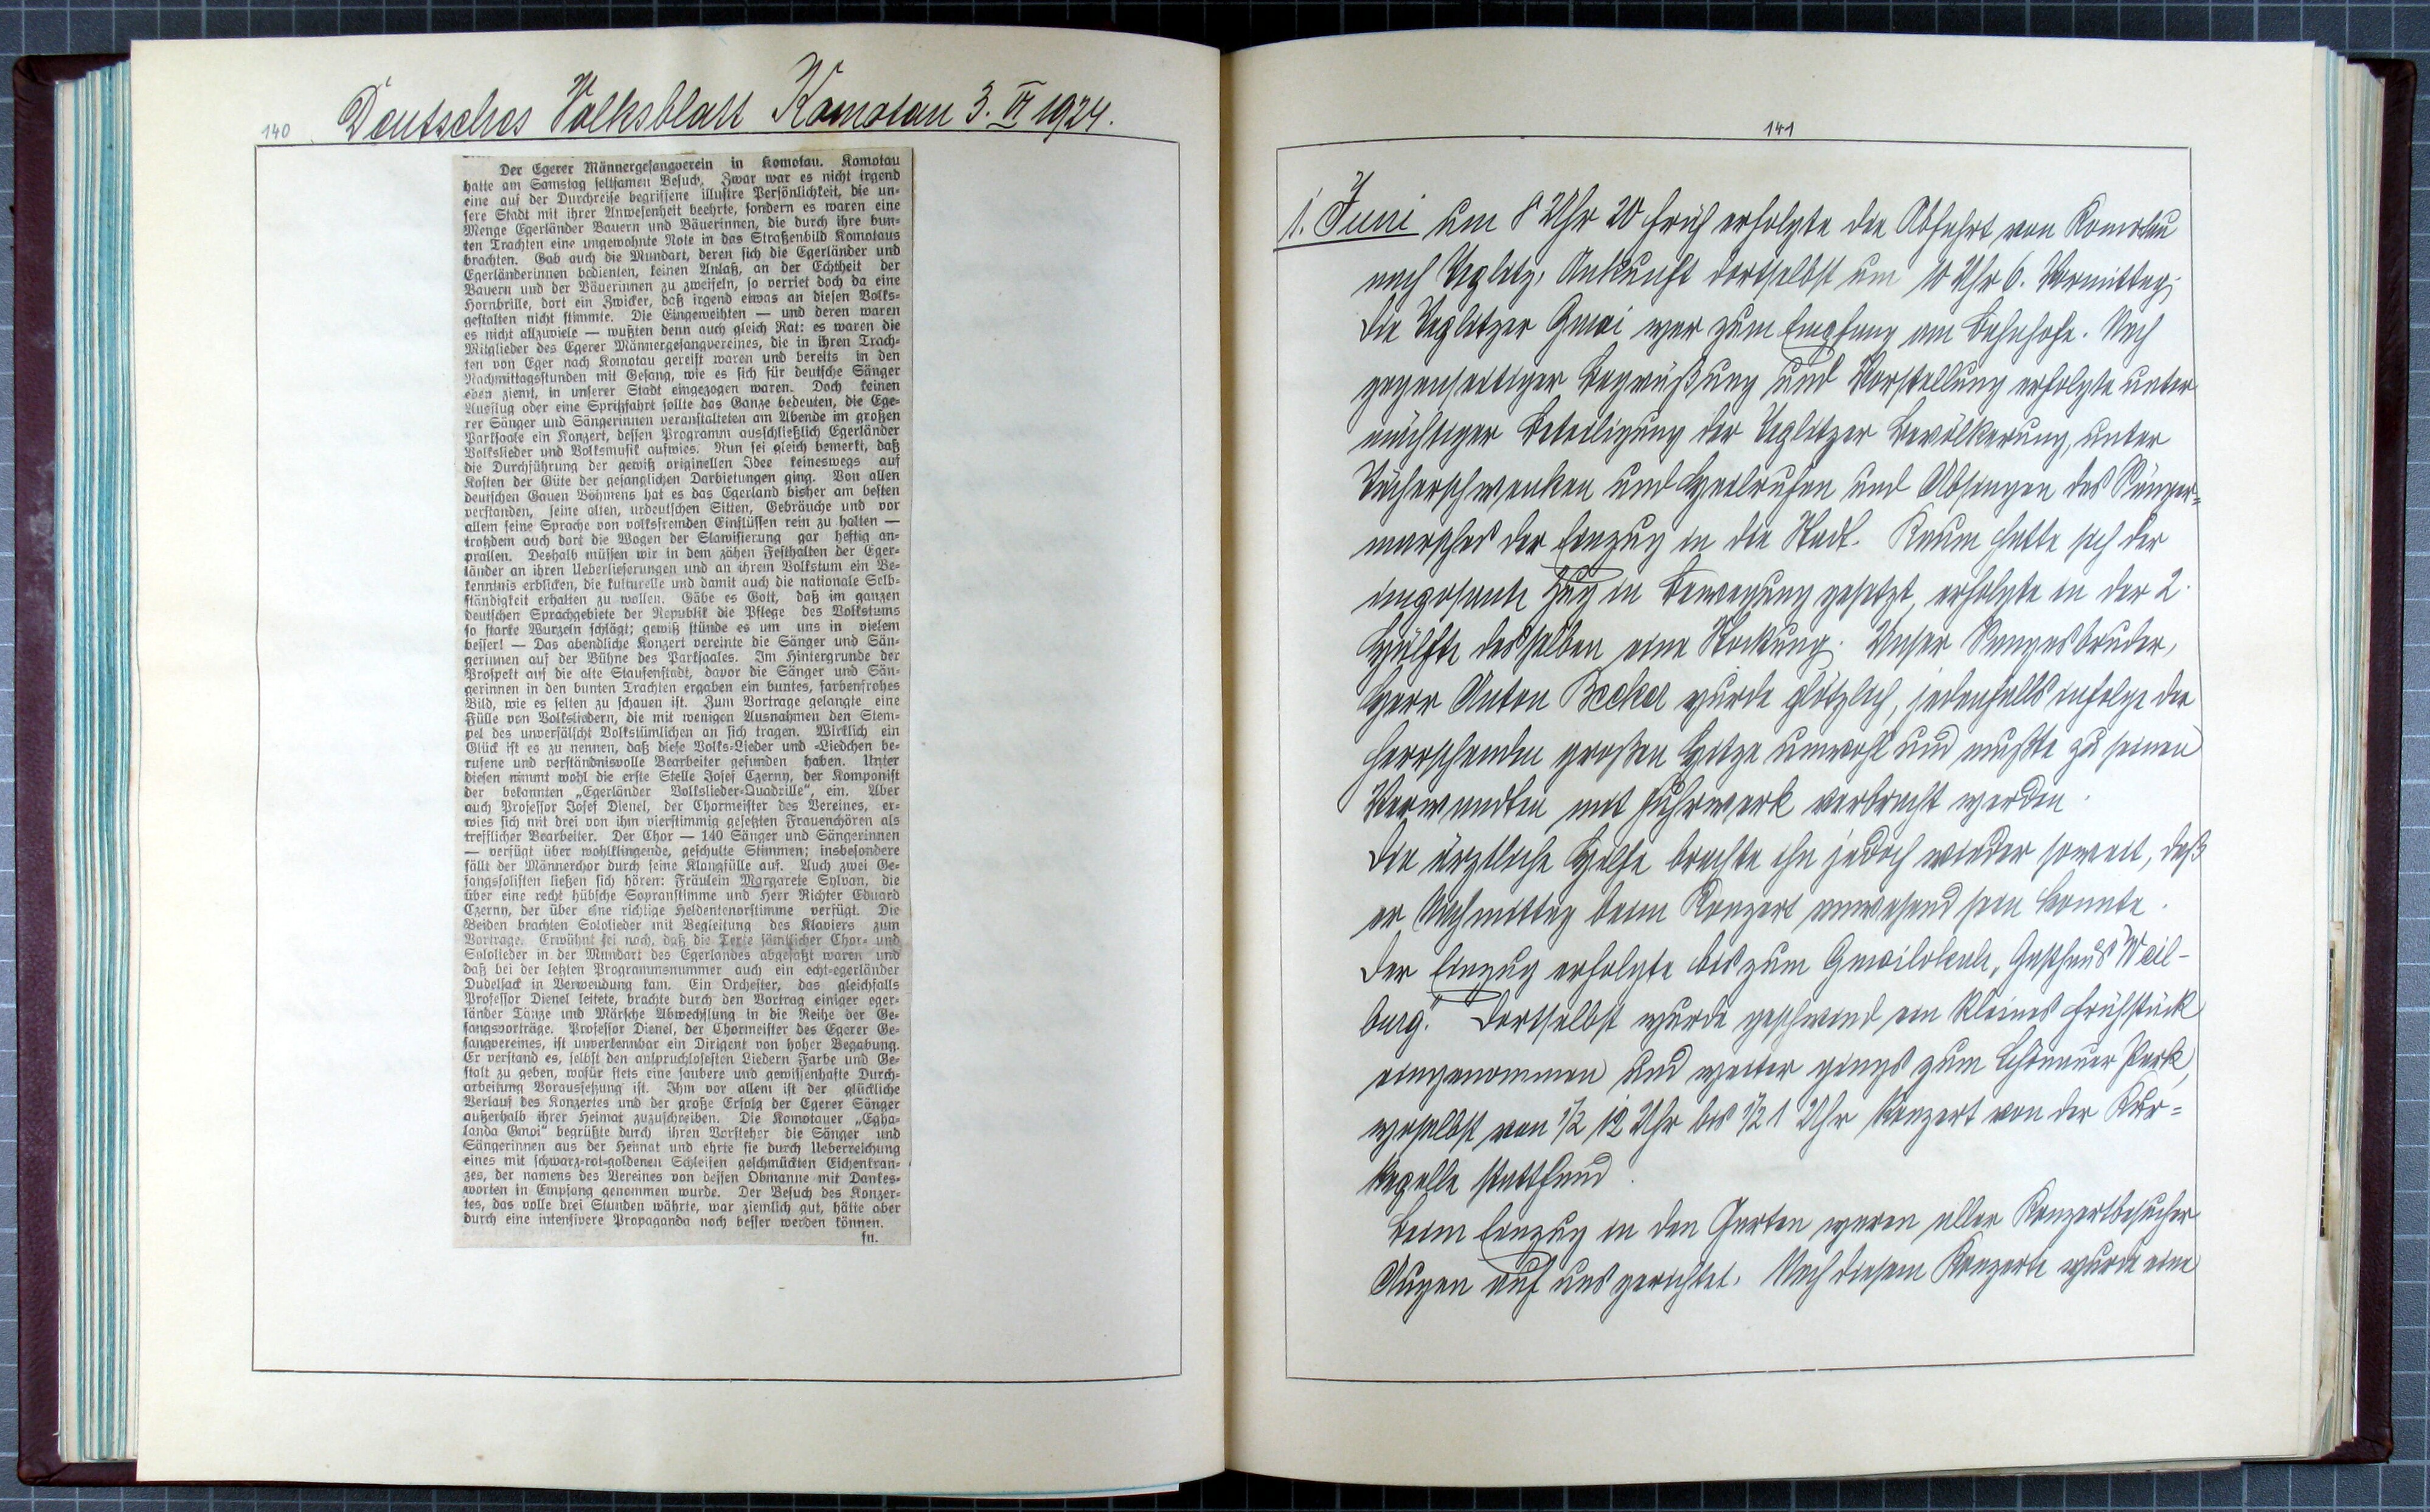 140
Deutsches Volksblatt Komotau 3. VI 1924.
Der Egerer Männergesangverein in Komotau. Komotau
hatte am Samstag seltsamen Besuch. Zwar war es nicht irgend
eine auf der Durchreise begriffene illustre Persönlichkeit, die un-
sere Stadt mit ihrer Anwesenheit beehrte, sondern es waren eine
Menge Egerländer Bauern und Bäuerinnen, die durch ihre bun-
ten Trachten eine ungewohnte Note in das Straßenbild Komotaus
brachten. Gab auch die Mundart, deren sich die Egerländer und
Egerländerinnen bedienten, keinen Anlaß, an der Echtheit der
Bauern und der Bäuerinnen zu zweifeln, so verriet doch da eine
Hornbrille, dort ein Zwicker, daß irgend etwas an diesen Volks-
gestalten nicht stimmte. Die Eingeweihten — und deren waren
es nicht allzuviele — wußten denn auch gleich Rat: es waren die
Mitglieder des Egerer Männergesangvereines, die in ihren Trach-
ten von Eger nach Komotau gereist waren und bereits in den
Nachmittagsstunden mit Gesang, wie es sich für deutsche Sänger
eben ziemt, in unserer Stadt eingezogen waren. Doch keinen
Ausflug oder eine Spritzfahrt sollte das Ganze bedeuten, die Ege-
rer Sänger und Sängerinnen veranstalteten am Abende im großen
Parksaale ein Konzert, dessen Programm ausschließlich Egerländer
Volkslieder und Volksmusik aufwies. Nun sei gleich bemerkt, daß
die Durchführung der gewiß originellen Idee keineswegs auf
Kosten der Güte der gesanglichen Darbietungen ging. Von allen
deutschen Gauen Böhmens hat es das Egerland bisher am besten
verstanden, seine alten, urdeutschen Sitten, Gebräuche und vor
allem seine Sprache von volksfremden Einflüssen rein zu halten —
trotzdem auch dort die Wogen der Slawisierung gar heftig an-
prallen. Deshalb müssen wir in dem zähen Festhalten der Eger-
länder an ihren Ueberlieferungen und an ihrem Volkstum ein Be-
kenntnis erblicken, die kulturelle und damit auch die nationale Selb-
ständigkeit erhalten zu wollen. Gäbe es Gott, daß im ganzen
deutschen Sprachgebiete der Republik die Pflege des Volkstums
so starke Wurzeln schlägt; gewiß stünde es um uns in vielem
besser! — Das abendliche Konzert vereinte die Sänger und Sän-
gerinnen auf der Bühne des Parksaales. Im Hintergrunde der
Prospekt auf die alte Staufenstadt, davor die Sänger und Sän-
gerinnen in den bunten Trachten ergaben ein buntes, farbenfrohes
Bild, wie es selten zu schauen ist. Zum Vortrage gelangte eine
Fülle von Volksliedern, die mit wenigen Ausnahmen den Stem-
pel des unverfälscht Volkstümlichen an sich tragen. Wirklich ein
Glück ist es zu nennen, daß diese Volks-Lieder und -Liedchen be-
rufene und verständnisvolle Bearbeiter gefunden haben. Unter
diesen nimmt wohl die erste Stelle Josef Czerny, der Komponist
der bekannten „Egerländer Volkslieder-Quadrille“, ein. Aber
auch Professor Josef Dienel, der Chormeister des Vereines, er-
wies sich mit drei von ihm vierstimmig gesetzten Frauenchören als
trefflicher Bearbeiter. Der Chor — 140 Sänger und Sängerinnen
— verfügt über wohlklingende, geschulte Stimmen; insbesondere
fällt der Männerchor durch seine Klangfülle auf. Auch zwei Ge-
sangssolisten ließen sich hören: Fräulein Margarete Sylvan, die
über eine recht hübsche Sopranstimme und Herr Richter Eduard
Czerny, der über eine richtige Heldentenorstimme verfügt. Die
Beiden brachten Sololieder mit Begleitung des Klaviers zum
Vortrage. Erwähnt sei noch, daß die Texte sämtlicher Chor- und
Sololieder in der Mundart des Egerlandes abgefaßt waren und
daß bei der letzten Programmsnummer auch ein echt-egerländer
Dudelsack in Verwendung kam. Ein Orchester, das gleichfalls
Professor Dienel leitete, brachte durch den Vortrag einiger eger-
länder Tänze und Märsche Abwechslung in die Reihe der Ge-
sangsvorträge. Professor Dienel, der Chormeister des Egerer Ge-
sangvereines, ist unverkennbar ein Dirigent von hoher Begabung.
Er verstand es, selbst den anspruchlosesten Liedern Farbe und Ge-
stalt zu geben, wofür stets eine saubere und gewissenhafte Durch-
arbeitung Voraussetzung ist. Ihm vor allem ist der glückliche
Verlauf des Konzertes und der große Erfolg der Egerer Sänger
außerhalb ihrer Heimat zuzuschreiben. Die Komotauer „Egha-
landa Gmoi“ begrüßte durch ihren Vorsteher die Sänger und
Sängerinnen aus der Heimat und ehrte sie durch Ueberreichung
eines mit schwarz-rot-goldenen Schleifen geschmückten Eichenkran-
zes, der namens des Vereines von dessen Obmanne mit Dankes-
worten in Empfang genommen wurde. Der Besuch des Konzer-
tes, das volle drei Stunden währte, war ziemlich gut, hätte aber
durch eine intensivere Propaganda noch besser werden können.
fn.
141
1. Juni um 8 Uhr 20 früh erfolgte die Abfahrt von Komotau
nach Teplitz, Ankunft dortselbst um 10 Uhr 6. Vormittag;
die Teplitzer Gmoi war zum Empfang am Bahnhofe. Nach
gegenseitiger Begrüßung und Vorstellung erfolgte unter
mächtiger Beteiligung der Teplitzer Bevölkerung, unter
Tücherschwenken und Heilrufen und Absingen des Sänger=
marsches der Einzug in die Stadt. Kaum hatte sich der
imposante Zug in Bewegung gesetzt, erfolgte in der 2.
Hälfte desselben eine Stockung. Unser Sangesbruder,
Herr Anton Becker wurde plötzlich, jedenfalls infolge der
herrschenden großen Hitze unwohl und mußte zu seinen
Verwandten mit Fuhrwerk verbracht werden.
Die ärztliche Hilfe brachte ihn jedoch wieder soweit, daß
er Nachmittag beim Konzert anwesend sein konnte.
Der Einzug erfolgte bis zum Gmoilokale, Gasthaus „Weil-
burg“. Dortselbst wurde geschwind ein kleines Frühstück
eingenommen und weiter gings zum Schönauer Park,
woselbst von ½ 12 Uhr bis ½ 1 Uhr Konzert von der Kur=
kapelle stattfand.
Beim Einzug in den Garten waren aller Konzertbesucher
Augen auf uns gerichtet. Nach diesem Konzerte wurde eine